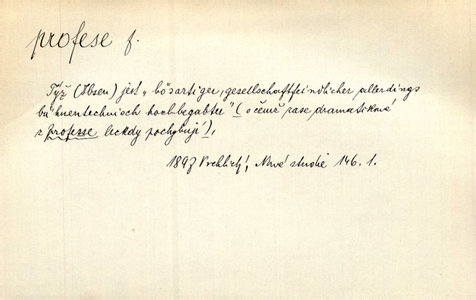 profese f.
Týž (Ibsen) jest „bösartiger, gesellschaftfeindlicher allerdings
bühnentechnisch hochbegabter“ (o čemž zase dramatikové
z professe leckdy pochybují),
1897 Vrchlický, Nové studie 146. 1.